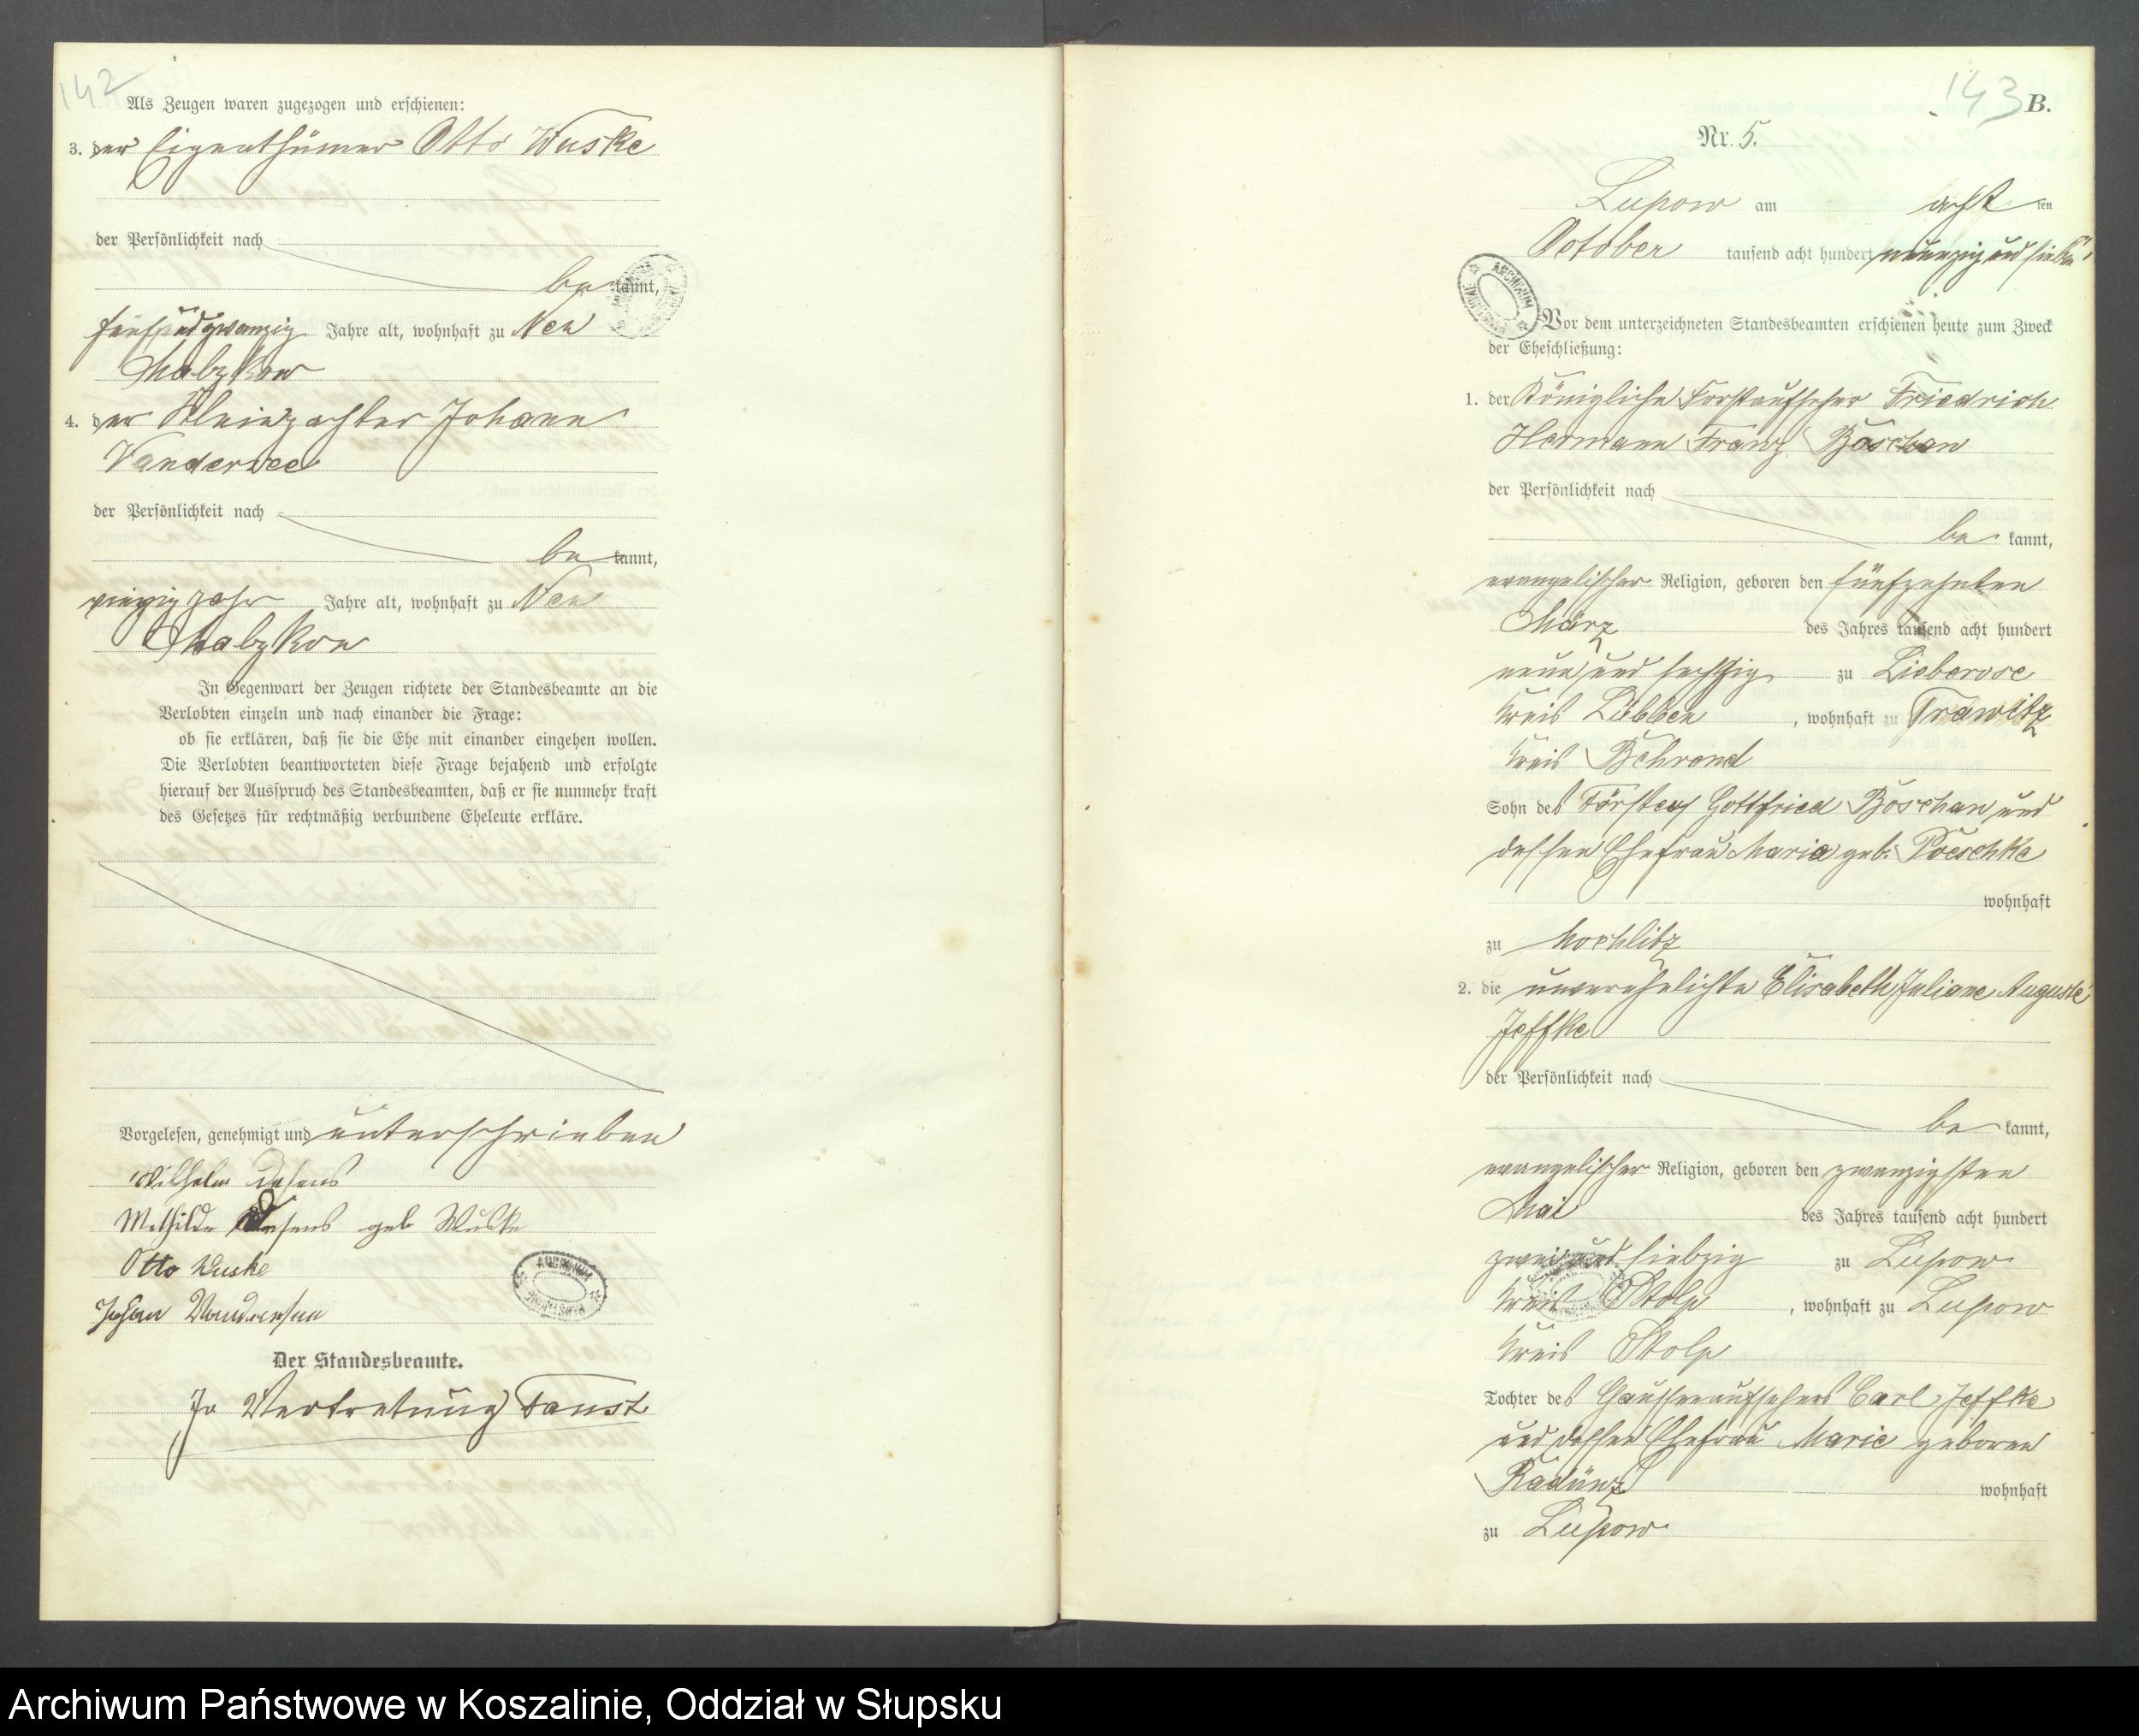 142
Als Zeugen waren zugezogen und erschienen:
3. der Eigenthümer Otto Wuske
der Persönlichkeit nach
bekannt,
fünfundzwanzig Jahre alt, wohnhaft zu Neu
Malzkow
4. der Kleinpächter Johann
Vandersee
der Persönlichkeit nach
bekannt,
vierzig Jahr Jahre alt, wohnhaft zu Neu
Malzkow
In Gegenwart der Zeugen richtete der Standesbeamte an die
Verlobten einzeln und nach einander die Frage:
ob sie erklären, daß sie die Ehe mit einander eingehen wollen.
Die Verlobten beantworteten diese Frage bejahend und erfolgte
hierauf der Ausspruch des Standesbeamten, daß er sie nunmehr kraft
des Gesetzes für rechtmäßig verbundene Eheleute erkläre.
Vorgelesen, genehmigt und unterschrieben
Wilhelm
Mathilde geb Wuske
Otto Wuske
Johan Vandersee
Der Standesbeamte.
In Vertretung Faust
143
B.
Nr. 5.
Lupow am acht ten
October tausend acht hundert neunzig und sieben
Vor dem unterzeichneten Standesbeamten erschienen heute zum Zweck
der Eheschließung:
1. der Königliche Forstaufseher Friedrich
Hermann Franz Böschan
der Persönlichkeit nach
bekannt,
evangelischer Religion, geboren den fünfzehnten
März des Jahres tausend acht hundert
neun und sechszig zu Lieberose
Kreis Lübben, wohnhaft zu Trawitz
Kreis Behrend
Sohn des Försters Gottfried Böschan und
dessen Ehefrau Maria geb. Poeschke
wohnhaft
zu Mochlitz
2. die unverehelichte Elisabeth Juliane Auguste
Jeffke
der Persönlichkeit nach
bekannt,
evangelischer Religion, geboren den zwanzigsten
Mai des Jahres tausend acht hundert
zwei und siebzig zu Lupow
Kreis Stolp, wohnhaft zu Lupow
Kreis Stolp
Tochter des Chausseeaufsehers Carl Jeffke
und dessen Ehefrau Marie geboren
Radünz wohnhaft
zu Lupow
Archiwum Państwowe w Koszalinie, Oddział w Słupsku